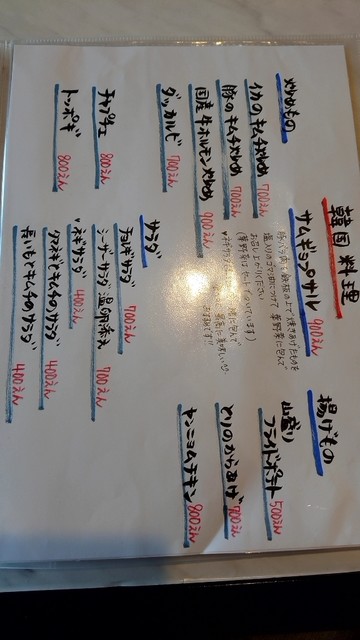 韓国料理
サムギョプサル 900えん
豚バラ肉を鉄板の上で焼きあげたものを
塩入りのゴマ油につけて、葉野菜に包んで
お召し上がりください
(葉野菜はセットでついています)
炒めもの
イカのキムチ炒め 700えん
豚のキムチ炒め 700えん
国産牛ホルモン炒め 900えん
ダッカルビ 700えん
チャプチェ 800えん
トッポギ 800えん
サラダ
チョレギサラダ 700えん
シーザーサラダ温卵添え 700えん
ネギサラダ 400えん
タマネギとキムチのサラダ 400えん
長いもとキムチのサラダ 400えん
揚げもの
山盛り
フライドポテト 500えん
とりのからあげ 700えん
ヤンニョムチキン 800えん